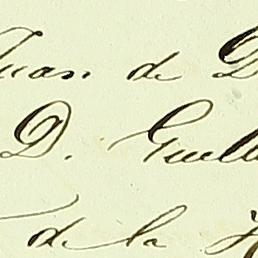 Juan de D
D. Guille
de la